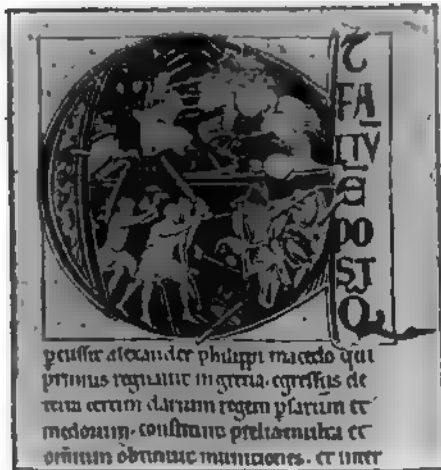 T
FA
CTV
E
PO
ST
Q
peussit alexander philippi macedo qui
primus regnauit in grecia. egressus de
terra cethim darium regem psarum et
medorum. constituit prelia multa et
omnium obtinuit munitiones. et inter